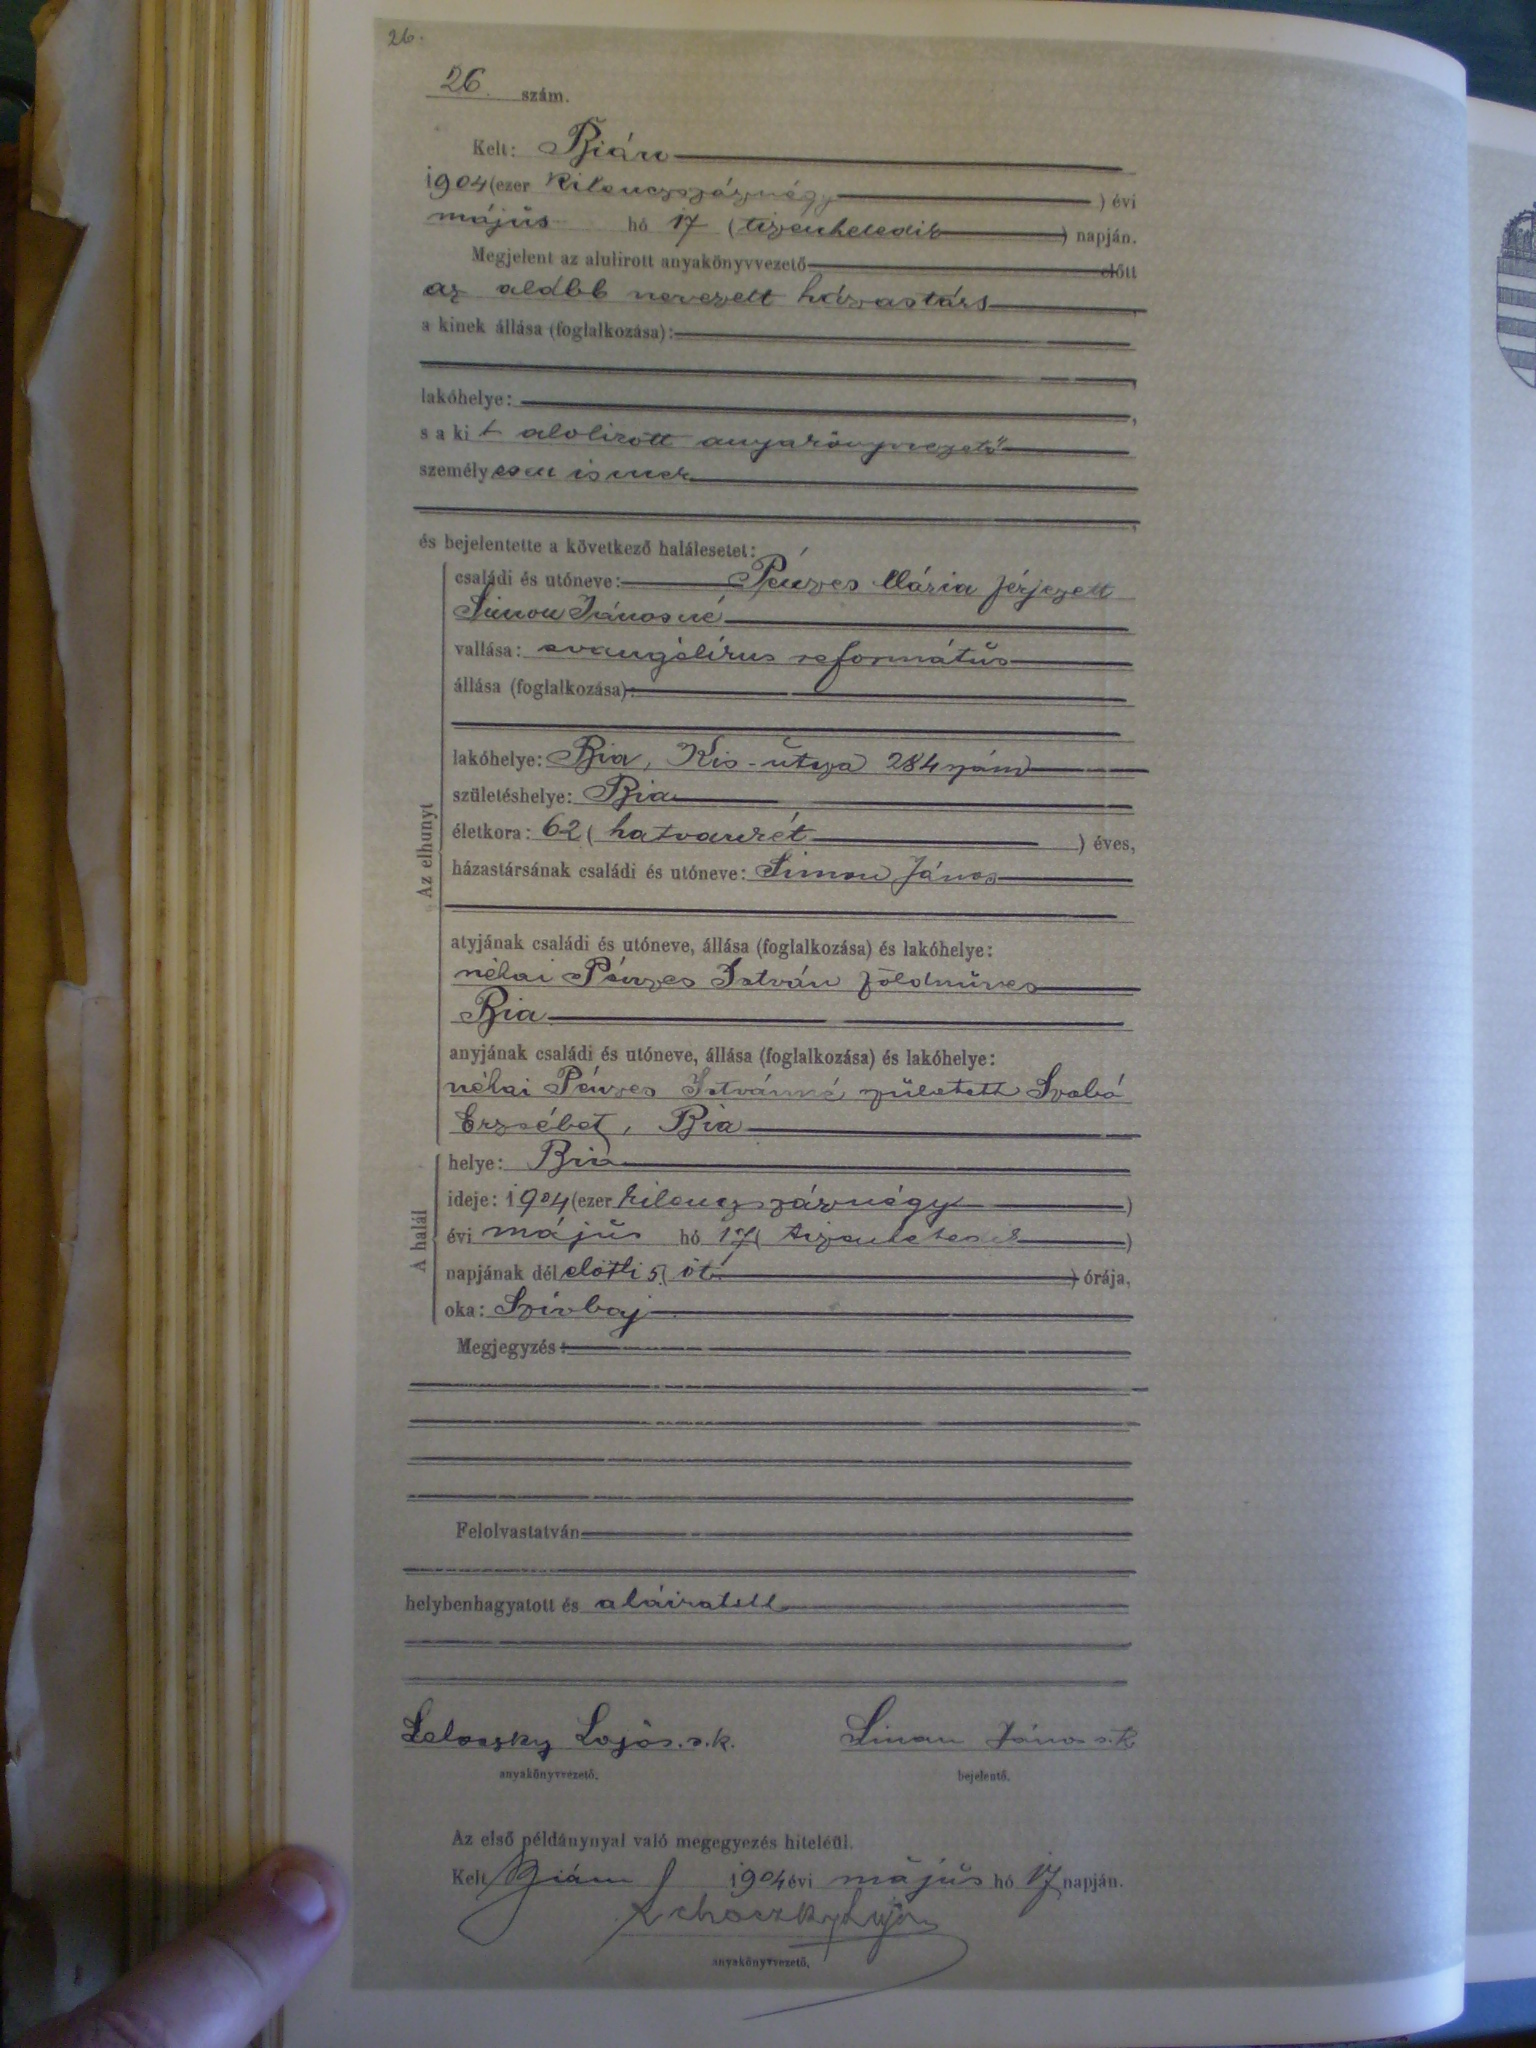 26.
26. szám.
Kelt: Bián
1904 (ezer kilenczszáznégy ) évi
május hó 17 (tizenhetedik ) napján.
Megjelent az alulirott anyakönyvvezető előtt
az alább nevezett házastárs
a kinek állása (foglalkozása):
lakóhelye:
s a ki t alolirott anyakönyvvezető
személy esen ismer
és bejelentette a következő halálesetet:
Az elhunyt
családi és utóneve: Pénzes Mária férjezett
Simon Jánosné
vallása: evangélikus református
állása (foglalkozása):
lakóhelye: Bia, Kis-útcza 284 szám
születéshelye: Bia
életkora: 62 (hatvankét ) éves,
házastársának családi és utóneve: Simon János
atyjának családi és utóneve, állása (foglalkozása) és lakóhelye:
néhai Pénzes István földműves
Bia
anyjának családi és utóneve, állása (foglalkozása) és lakóhelye:
néhai Pénzes Istvánné született Szabó
Erzsébet, Bia
A halál
helye: Bia
ideje: 1904 (ezer kilenczszáznégy )
évi május hó 17 (tizenhetedik )
napjának dél előtti 5 (öt ) órája,
oka: Szívbaj
Megjegyzés:
Felolvastatván
helybenhagyatott és aláiratott
Lajos s.k. Simon János s.k.
anyakönyvvezető. bejelentő.
Az első példánynyal való megegyezés hiteléül.
Kelt Bián 1904 évi május hó 17 napján.
Lajos
anyakönyvvezető.